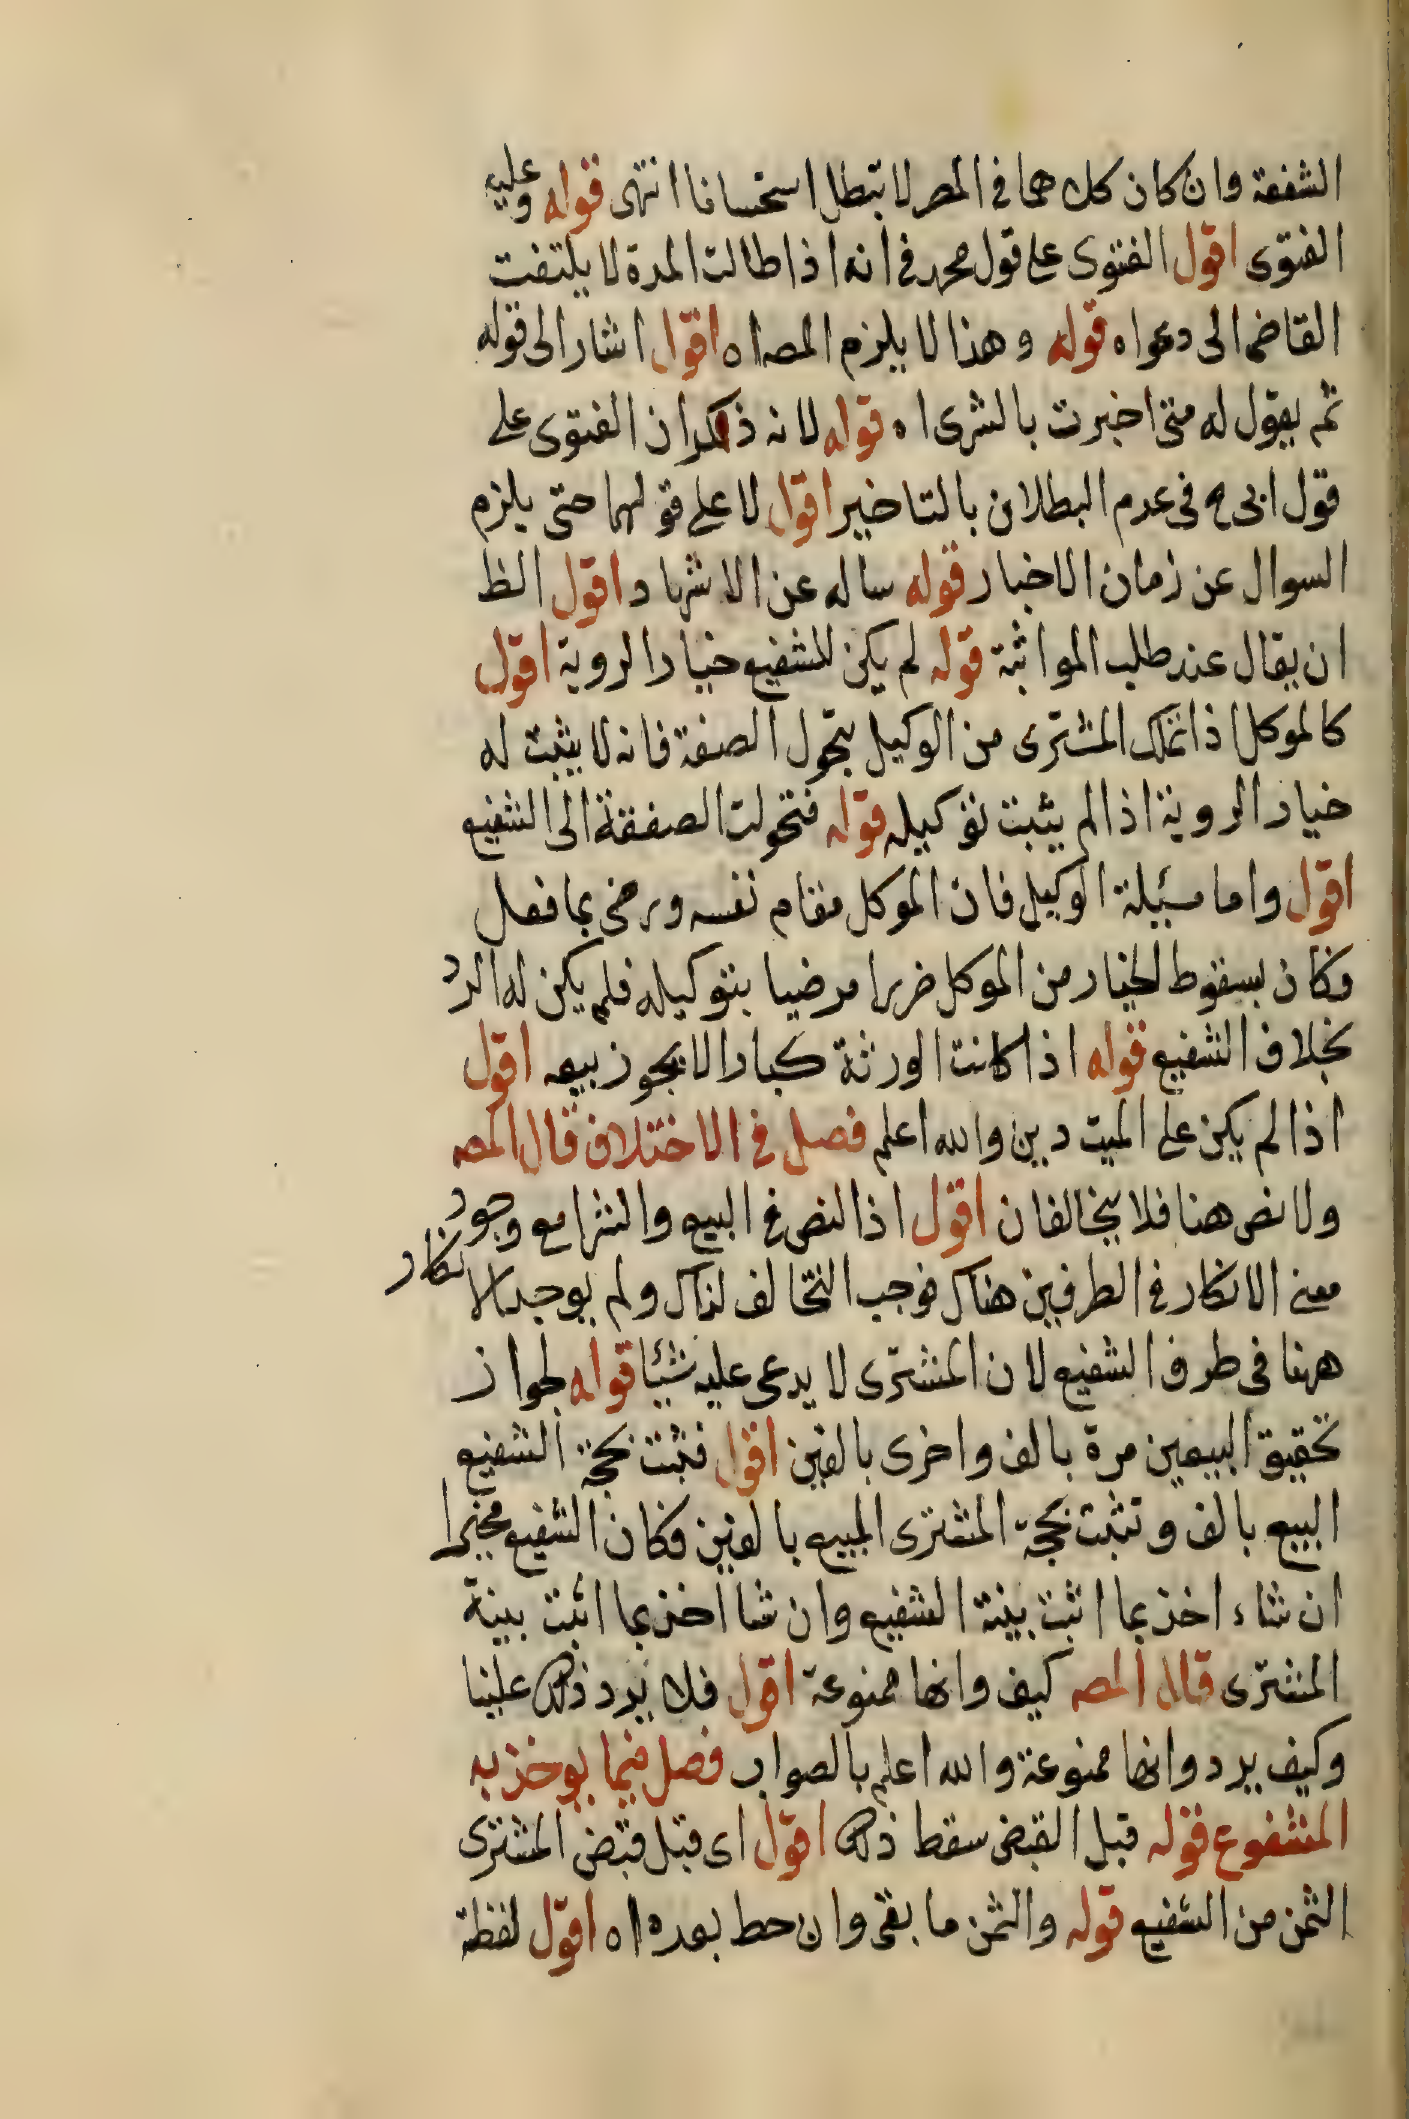 الشفعة وان كان كل هما فى المصر لا تبطل استحسانا انتهى قوله وعليه
الفتوى اقول الفتوى على قول محمد فى انه اذا طالت المدة لا يلتفت
القاضى الى دعواه قوله وهذا لا يلزم المصـ اه اقول اشار الى قوله
ثم يقول له متى اخبرت بالشرى اه قوله لانه ذكر ان الفتوى على
قول ابى ح فى عدم البطلان بالتاخير اقول لا على قولهما حتى يلزم
السوال عن زمان الاخبار قوله ساله عن الاشهاد اقول الظ
ان يقال عند طلب المواثبة قوله لم يكن للشفيع خيار الروية اقول
كالموكل اذا تملك المشترى من الوكيل بتحول الصفة فانه لا يثبت له
خيار الروية اذا لم يثبت توكيله قوله فتحولت الصفقة الى الشفيع
اقول واما مسئيلة الوكيل فان الموكل مقام نفسه ورضى بما فعل
وكان بسقوط الخيار من الموكل ضررا مرضيا بتوكيله فلم يكن له الرد
بخلاف الشفيع قوله اذا كانت الورثة كبارا لا يجوز بيعه اقول
اذا لم يكن على الميت دين والله اعلم فصل فى الاختلاف قال المصـ
ولا نص هنا فلا يتخالفان اقول اذ النص فى البيع والشرا مع وجود
معنى الانكار فى الطرفين هناك فوجب التخالف لذاك ولم يوجد الانكار
ههنا فى طرف الشفيع لان المشترى لا يدعى عليه شيئا قوله لجواز
تحقيق البيعين مرة بالف واخرى بالفين اقول فثبت بحجة الشفيع
البيع بالف وتثبت بحجة المشترى المبيع بالفين فكان الشفيع مخيرا
ان شاء اخذ بما اثبت بينة الشفيع وان شا اخذ بما اثبت بينة
المشترى قال المصـ كيف وانها ممنوعة اقول فلا يرد ذلك علينا
وكيف يرد وانها ممنوعة والله اعلم بالصواب فصل فيما يوخذ به
المشفوع قوله قبل القبض سقط ذلك اقول اى قبل قبض المشترى
الثمن من الشفيع قوله والثمن ما بقى وان حط بعده اه اقول لفظة